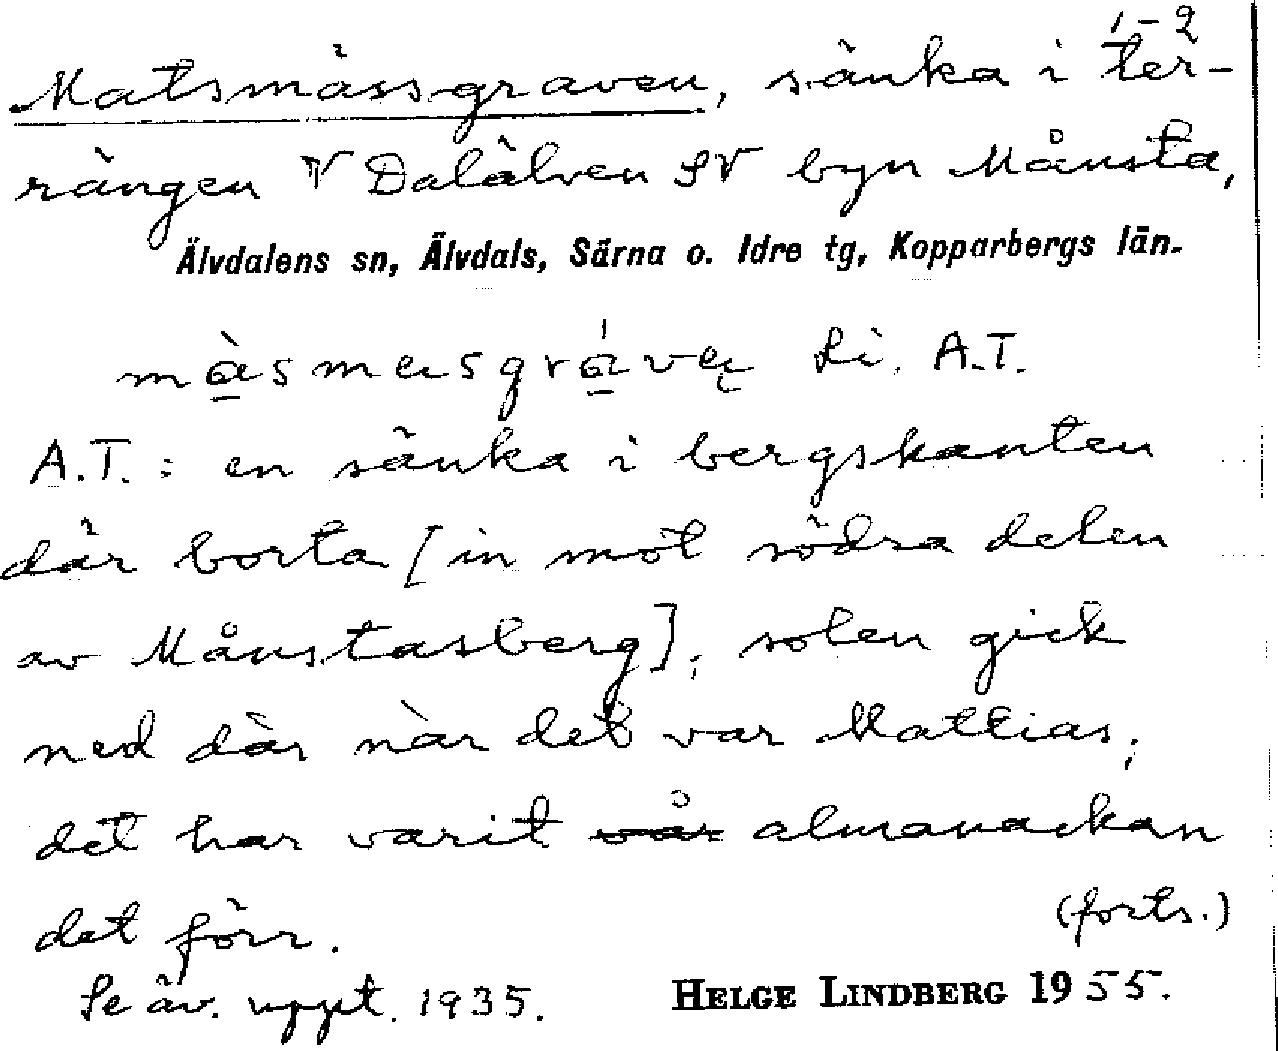 1-2
Matsmässgraven, sänka i ter-
rängen V Dalälven SV byn Månsta,
Älvdalens sn, Älvdals, Särna o. Idre tg, Kopparbergs län.
Li. A.T.
A.T.: en sänka i bergskanten
där borta [in mot södra delen
av Månstasberg]; solen gick
ned där när det var Mattias;
det har varit vår almanackan
det förr.
(forts.)
Se äv. uppt. 1935. HELGE LINDBERG 1955.